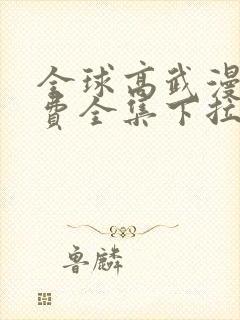 全球高武漫
费全集下拉
鲁麟